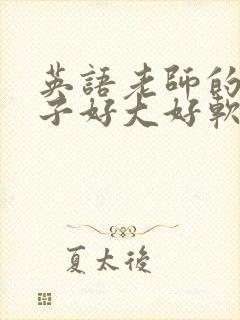 英語老師的
子好大好軟
夏太後